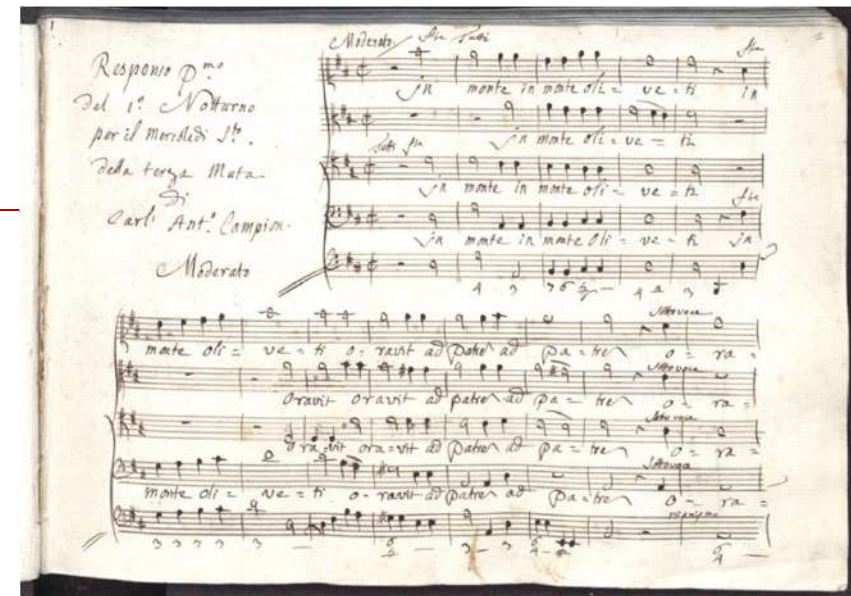 1
Responso Pmo
Del 1o Notturno
per il Mercoledì Sto.
della terza Muta
Di
Carlo Anto. Campion.
Moderato
Moderato
Tutti
In monte in monte oli = ve = ti in
In monte oli = ve = ti
In monte in monte oli = ve = ti
In monte in monte oli = ve = ti In
Sottovoce
monte oli = ve = ti o = ravit ad Patrem ad Pa = trem o = ra =
Sottovoce
Oravit oravit ad patrem ad pa = trem o = ra =
Sottovoce
Oravit ora = vit ad Patrem ad pa = trem o = ra =
Sottovoce
monte oli = ve = ti o = ravit ad Patrem ad Pa = trem o = ra =